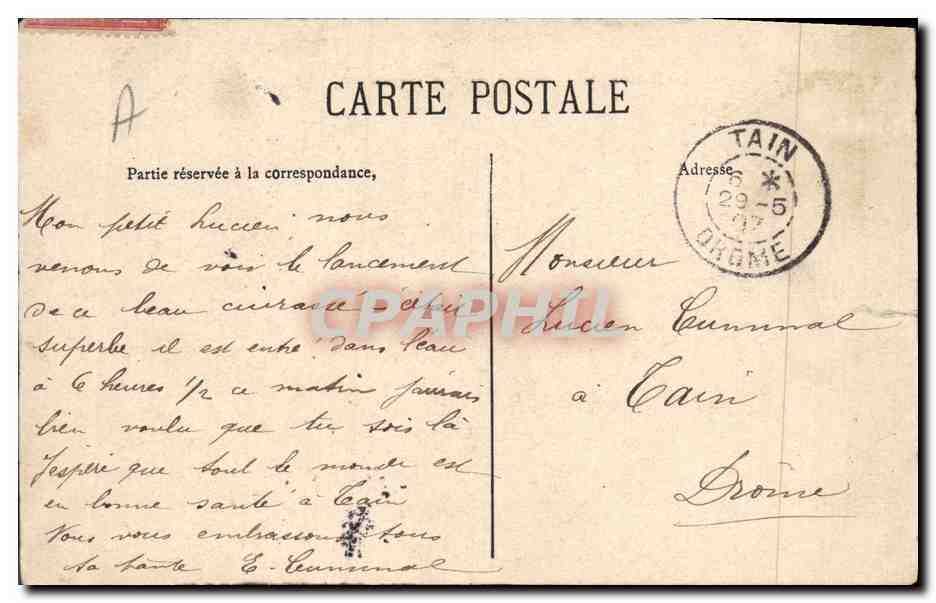 A
CARTE POSTALE
Partie réservée à la correspondance,
Adresse
TAIN
6 *
29-5
07
DROME
Mon petit Lucien, nous
venons de voir le lancement
de ce beau cuirassé
superbe il est entré dans l'eau
à 6 heures 1/2 ce matin j'aurais
bien voulu que tu sois là
J'espère que tout le monde est
en bonne santé à Tain
Nous vous embrassons tous
ta tante E. Cuminal
Monsieur
Lucien Cuminal
à Tain
Drôme
CPAPHIL